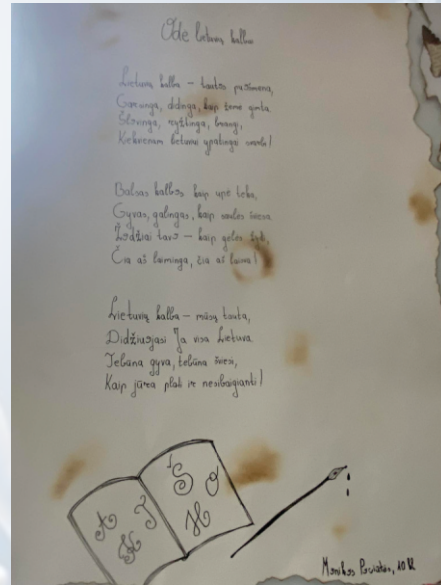 Odė lietuvių kalbai
Lietuvių kalba – tautos pažiment,
Garsinga, didinga, kaip žemė gimta.
Skvinga, ryžtinga, brangi,
Kiekvienam lietuviui ypatingai svarbi!
Balsas kalbos, kaip upė teka,
Gyvas, galingas, kaip saulės šviesa.
Žodžiai tavo – kaip gėlės žydi,
Čia aš laiminga, čia aš laisva!
Lietuvių kalba – mūsų tauta,
Didžiuojasi Ja visa Lietuva.
Tebūna gyva, tebūna šviesi,
Kaip jūra plati ir nesibaigianti!
A J
S O
H
10